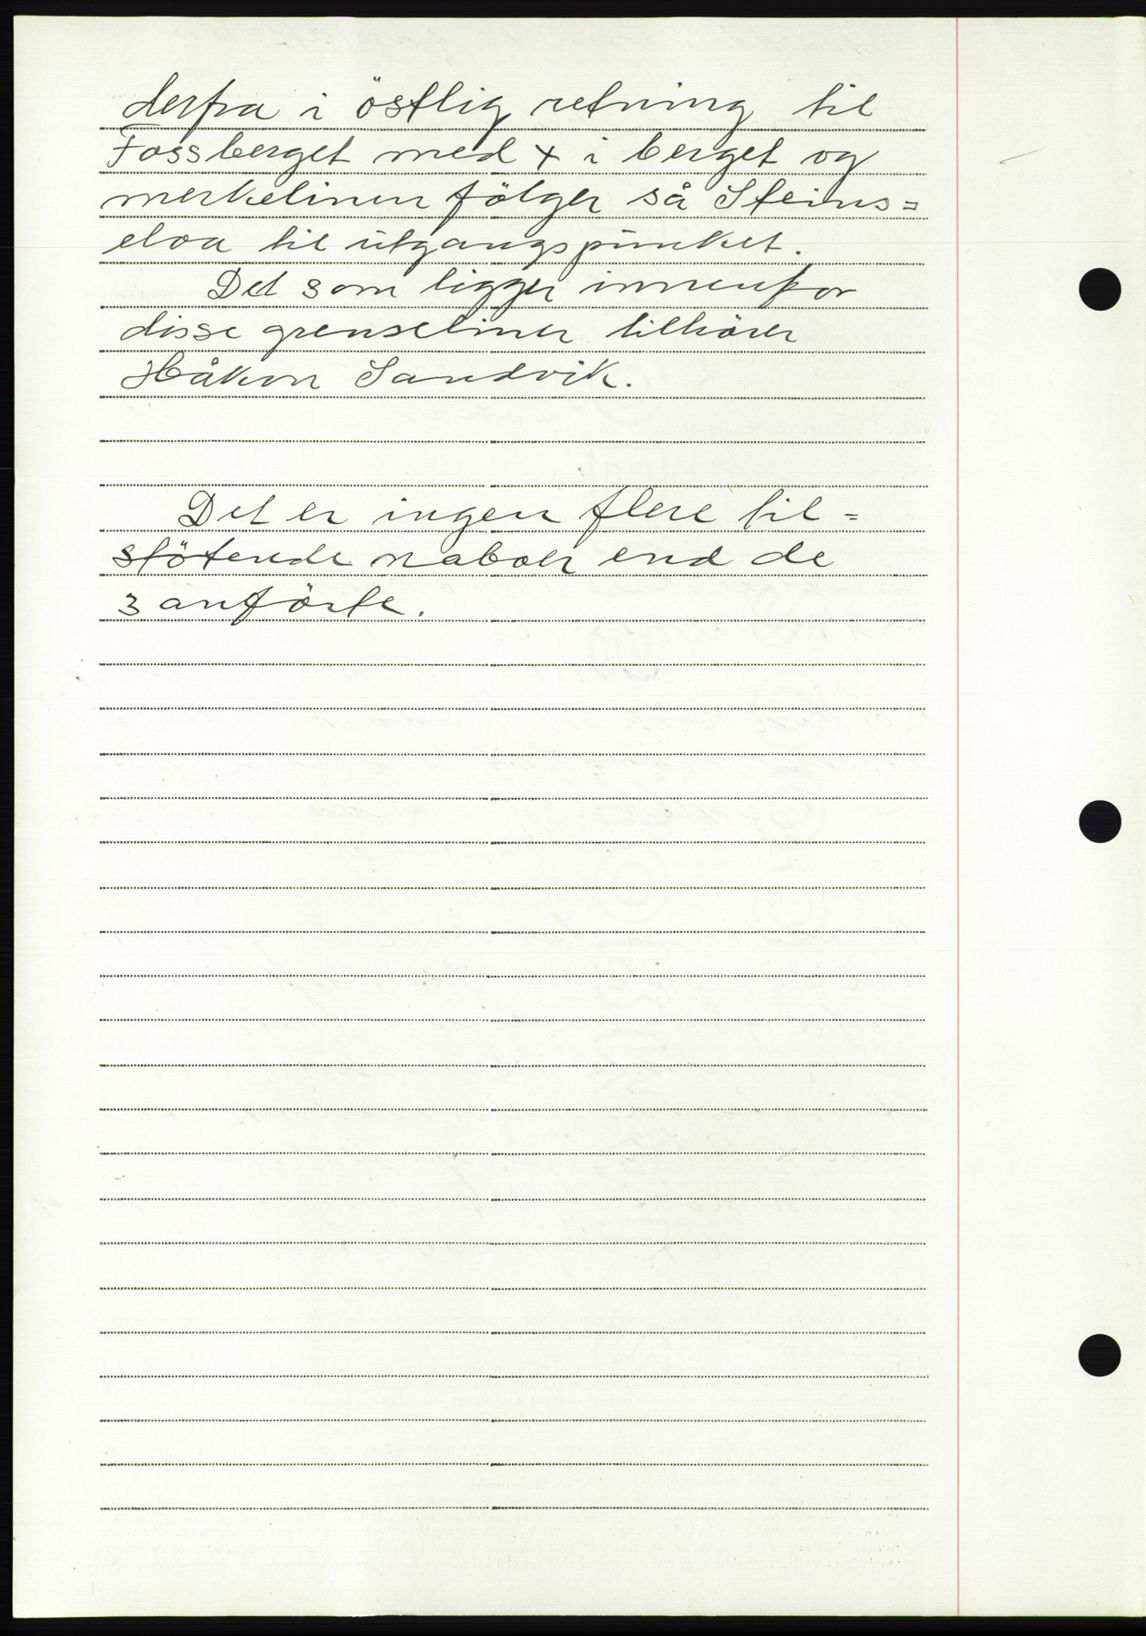 derfra i östlig retning til
Fossberget med + i berget og
merkelinen fölger så Steins=
elva til utgangspunktet.
Det som ligger innenfor
disse grenseliner tilhörer
Håkon Sandvik.
Det er ingen flere til=
stötende naboer end de
3 anförte.